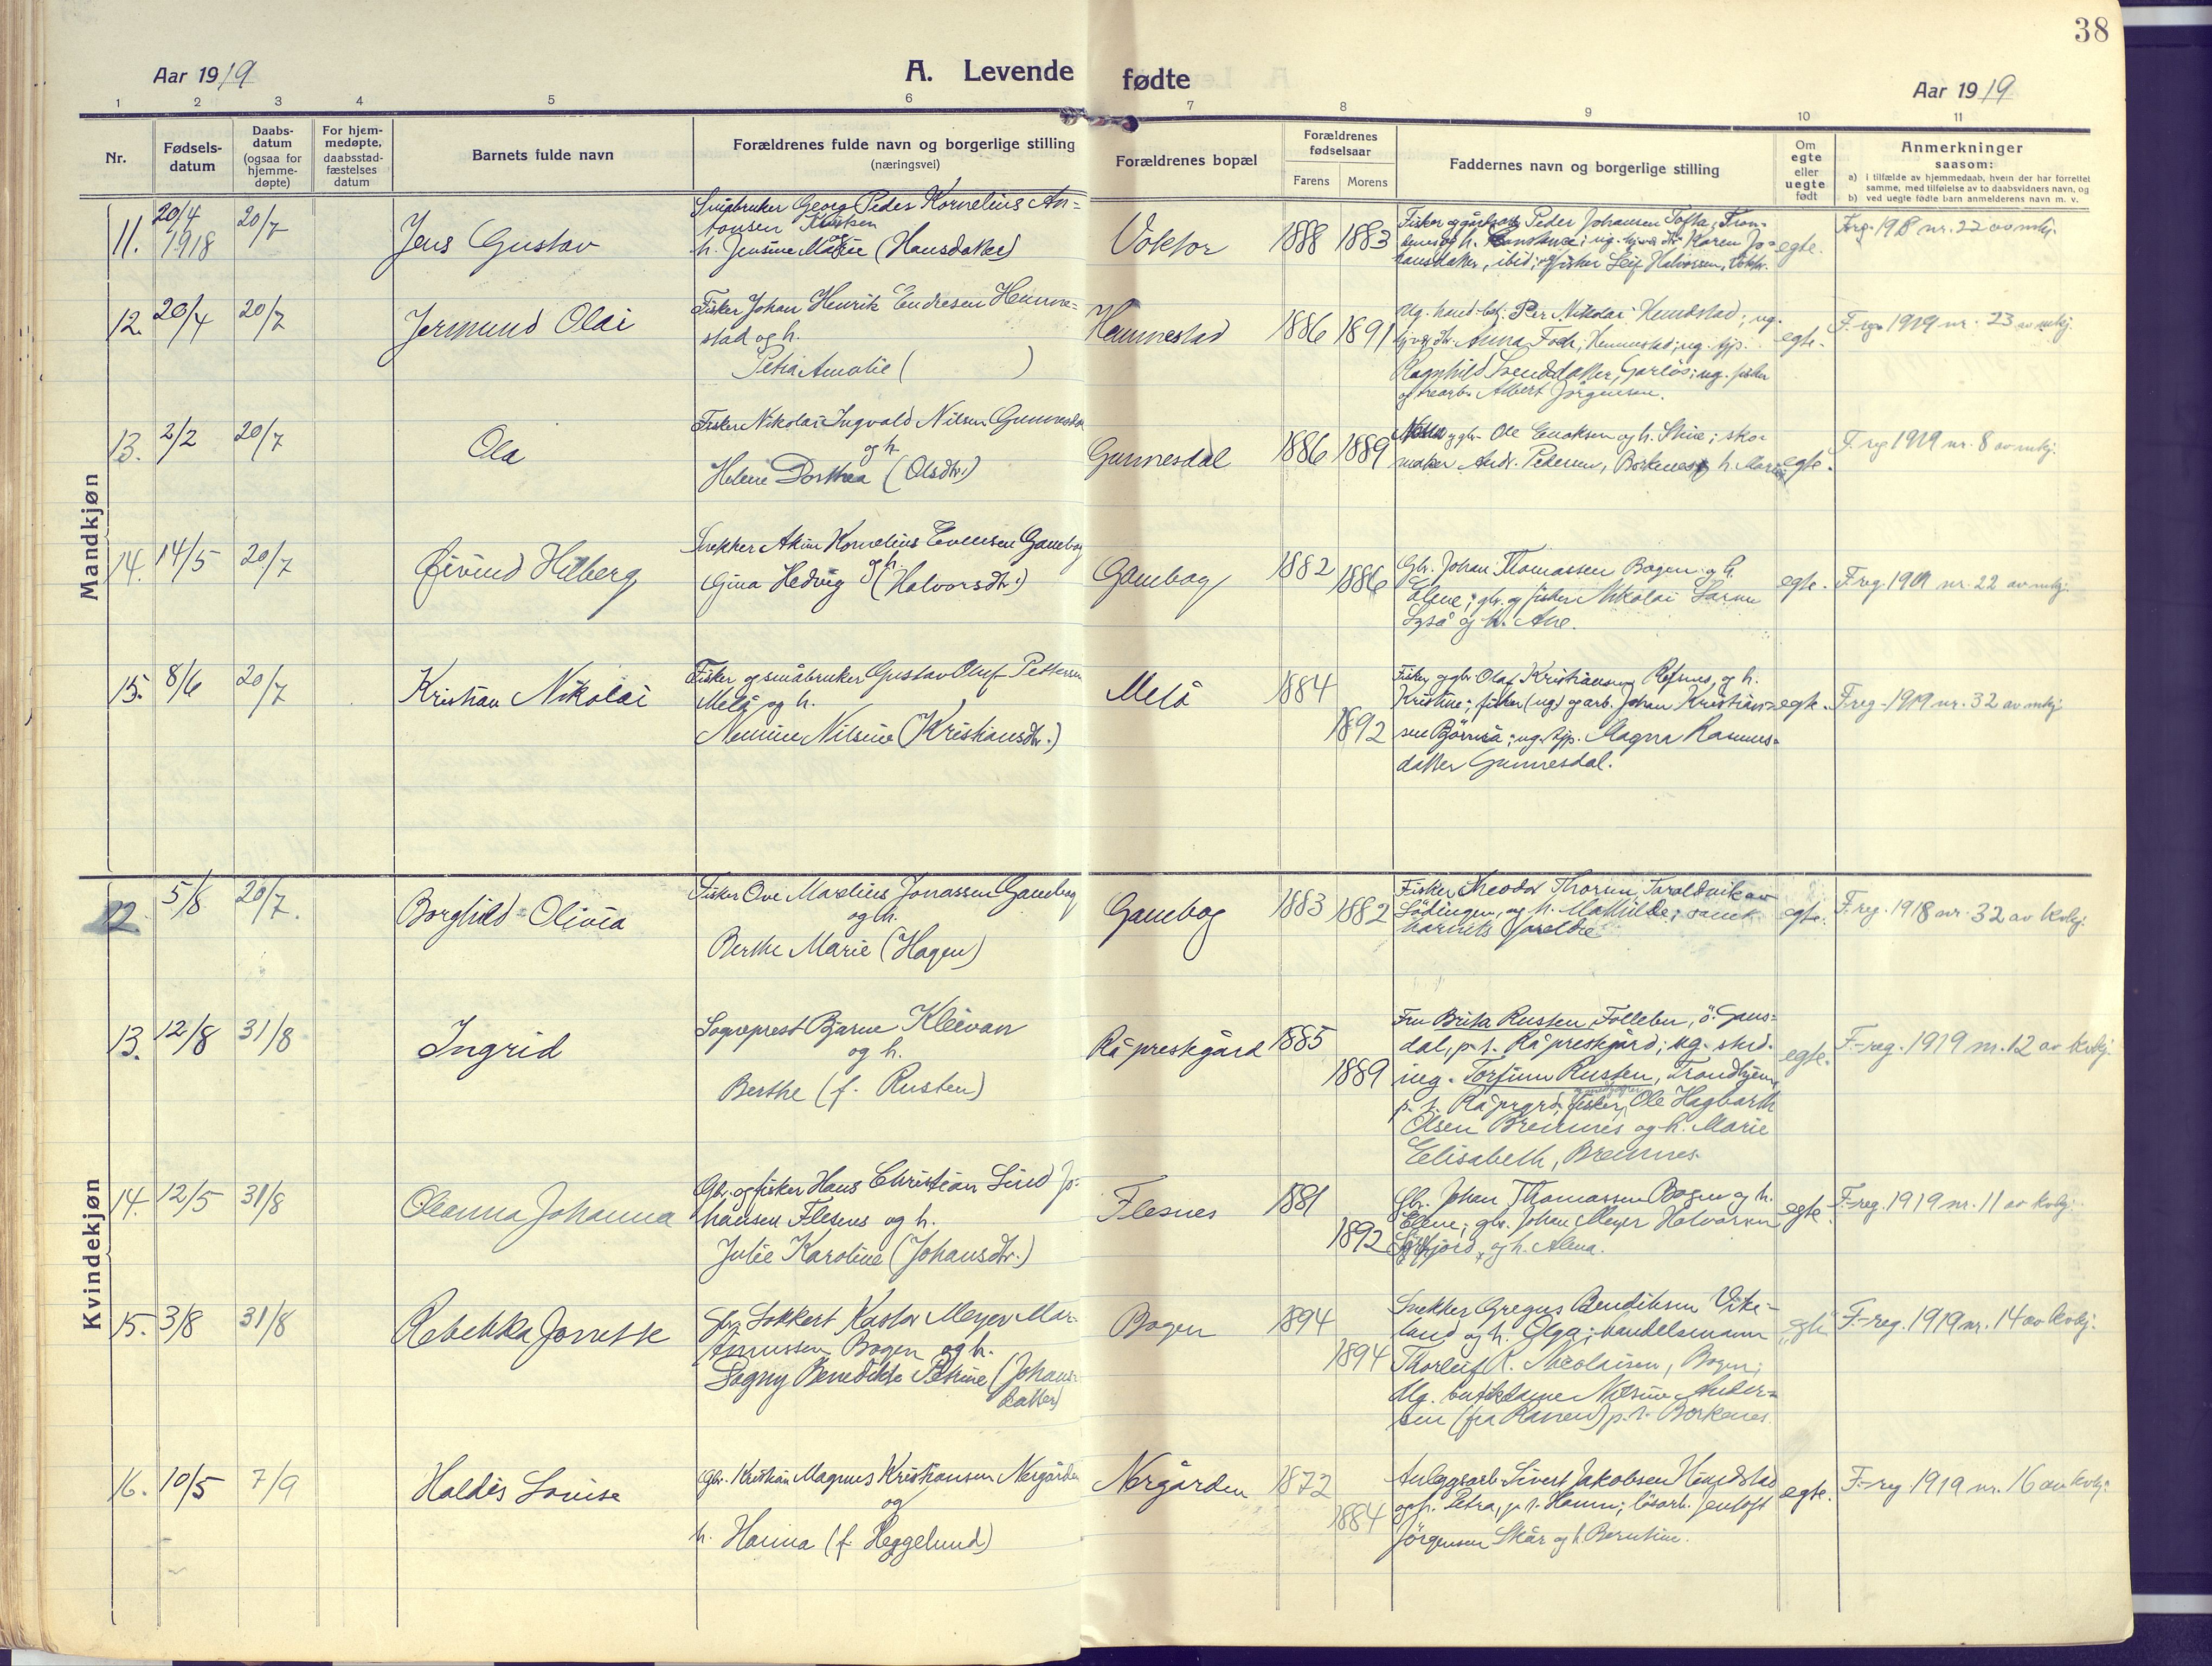 38
Aar 1919
A. Levende fødte
Aar 1919
1 2 3 4 5 6 7 8 9 10 11
Nr.
Fødsels-
datum
Daabs-
datum
(ogsaa for
hjemme-
døpte)
For hjem-
medøpte,
daabsstad-
fæstelses
datum
Barnets fulde navn
Forældrenes fulde navn og borgerlige stilling
(næringsvei)
Forældrenes bopæl
Forældrenes
fødselsaar
Farens Morens
Faddernes navn og borgerlige stilling
Om
egte
eller
uegte
født
Anmerkninger
saasom:
a) i tilfælde av hjemmedaab, hvem der har forrettet
samme, med tilføielse av to daabsvidners navn, og
b) ved uegte fødte barn anmelderens navn m. v.
Mandkjøn
11. 20/4 1918 20/7
Jens Gustav
Småbruker Georg Peder Kornelius An-
tonsen
h. Jensine (Hansdatter)
Voktor
1888 1883
Peder Johansen Tofta,
og h. Karen Jo-
hansdatter, ibid; fisker Leif Halvorsen,
egte.
nr. 22 av mkj.
12. 20/4 20/7
Jermund Olai
Fisker Johan Henrik Endresen Hemme-
stad og h.
Petra Amalie ( )
Hemmestad
1886 1891
Per Nikolai ; ug.
Anna
Ragnhild ; ug. fisker
Albert Jörgensen.
egte.
F. reg. 1919 nr. 23 av mkj.
13. 2/2 20/7
Ola
Fisker Nikolai Ingvald Nilsen Gunnesdal
og h.
Helene Dorthea (Olsdtr.)
Gunnesdal
1886 1889
gbr. Ole Enoksen og h. Stine; sko-
maker Andr. Pedersen, Borkenes og h. Marie
egte.
F. reg. 1919 nr. 8 av mkj.
14. 14/5 20/7
Øivind Hilberg
Snekker Akim Kornelius Evensen Gausbog
og h.
Gina Hedvig (Halvorsdtr.)
Gausbog
1882 1886
Gbr. Johan Thomassen Bogen og h.
Eline; gbr. og fisker Nikolai
og h. Ane.
egte.
F. reg. 1919 nr. 22 av mkj.
15. 8/6 20/7
Kristian Nikolai
Fisker og småbruker Gustav Oluf Pettersen
Melå og h.
Nilsine (Kristiansdtr.)
Melå
1884
1892
Fisker og gbr. Olaf Kristiansen Refsnes og h.
Kristine; fisker (ug) og arb. Johan Kristian-
sen Björnrå; ug. tjp. Magna Rasmus-
datter Gunnesdal.
egte.
F. reg. 1919 nr. 32 av mkj.
Kvindekjøn
12. 5/8 20/7.
Borghild Olivia
Fisker Ove Marelius Jonassen Gausbog
og h.
Berthe Marie (Hagen)
Gausbog
1883 1882
Fisker Theodor Thorsen, Taraldsvik av
Lödingen, og h. Mathilde; samt
barnets foreldre
egte.
F. reg. 1918 nr. 32 av kvkj.
13. 12/8 31/8
Ingrid
Sogneprest Bjarne Kleivan
og h.
Berthe (f. Rusten)
Rå prestegård
1885
1889
Fru Brita Rusten Follebu, ö. Gaus-
dal, p. t. Rå prestegård; ug. stud.
ing. Torfinn Rusten, Trondhjem,
p. t. Rå prgrd; fisker Ole Hagbarth
Olsen Bremnes og h. Marie
Elisabeth, Bremnes.
egte.
F.-reg. 1919 nr. 12 av kvkj.
14. 12/5 31/8
Oleanna Johanna
Gbr. og fisker Hans Christian Lind Jo-
hansen Flesnes og h.
Julie Karoline (Johansdtr.)
Flesnes
1881
1892
Gbr. Johan Thomassen Bogen og h.
Eline; gbr. Johan Meyer Halvorsen
og h. Alma.
egte.
F.-reg. 1919 nr. 11 av kvkj.
15. 3/8 31/8
Rebekka Jonette
Lokkert Kastor Meyer Mar-
Bogen og h.
Dagny Benedikte Petrine (Johans-
datter)
Bogen
1894
1894
Snekker Gregus Bendiksen Vike-
land og h. Olga; handelsmann
Thorleif R. Nicolaisen, Bogen;
ug. butikdame Nilsine Ander-
sen (fra Ranen) p. t. Borkenes.
egte
F.-reg. 1919 nr. 14 av kvkj.
16. 10/5 7/9
Haldis Lovise
Gbr. Kristian Magnus Kristiansen Norgården
og
h. Hanna (f. Heggelund)
Norgården
1872
1884
Anleggsarb. Sivert Jakobsen
og h. Petra, p. t. Hamn; lösarb. Jentoft
Jörgensen Skår og h. Berntine.
egte.
F.-reg. 1919 nr. 16 av kvkj.